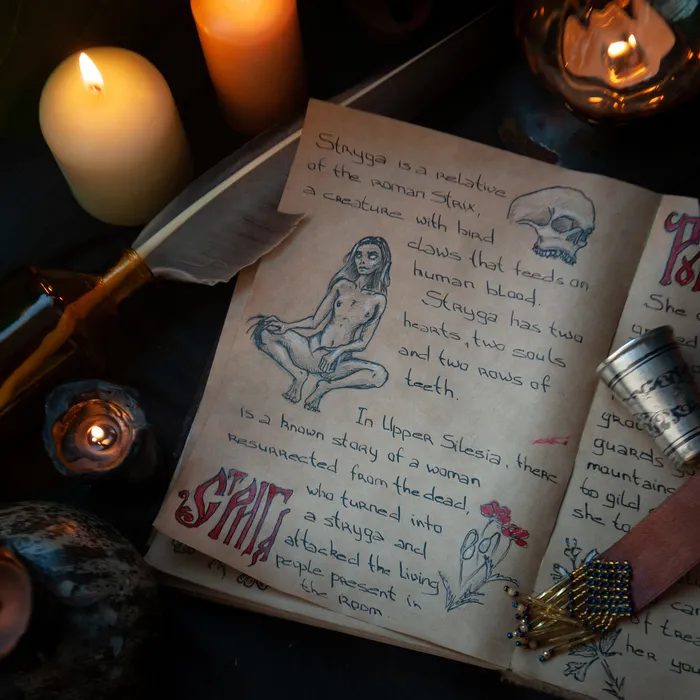 Stryga is a relative
of the roman Strix,
a creature with bird
claws that feeds on
human blood.
Stryga has two
hearts, two souls
and two rows of
teeth.
In Upper Silesia, there
is a known story of a woman
resurrected from the dead,
who turned into
a stryga and
attacked the living
people present in
the room.
She
guards
mountains
to gild
she to
of trea
her you